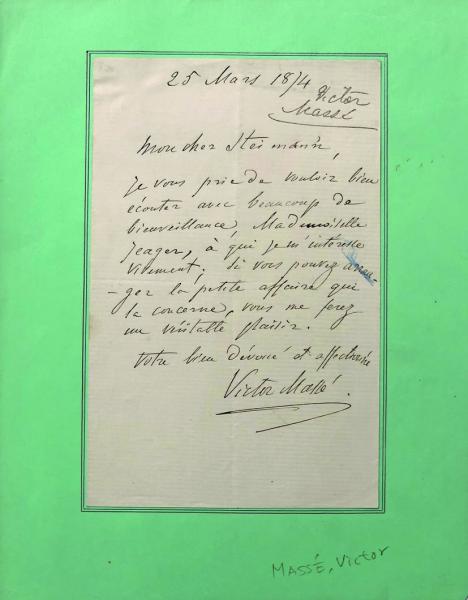 25 Mars 1874
Victor
Massé
Mon cher Steinmann,
je vous prie de vouloir bien
écouter avec beaucoup de
bienveillance, Mademoiselle
Jeager, à qui je m'intéresse
vivement. Si vous pouvez arran
-ger la petite affaire qui
la concerne, vous me ferez
un véritable plaisir.
Votre bien dévoué et affectionné
Victor Massé.
MASSÉ, Victor